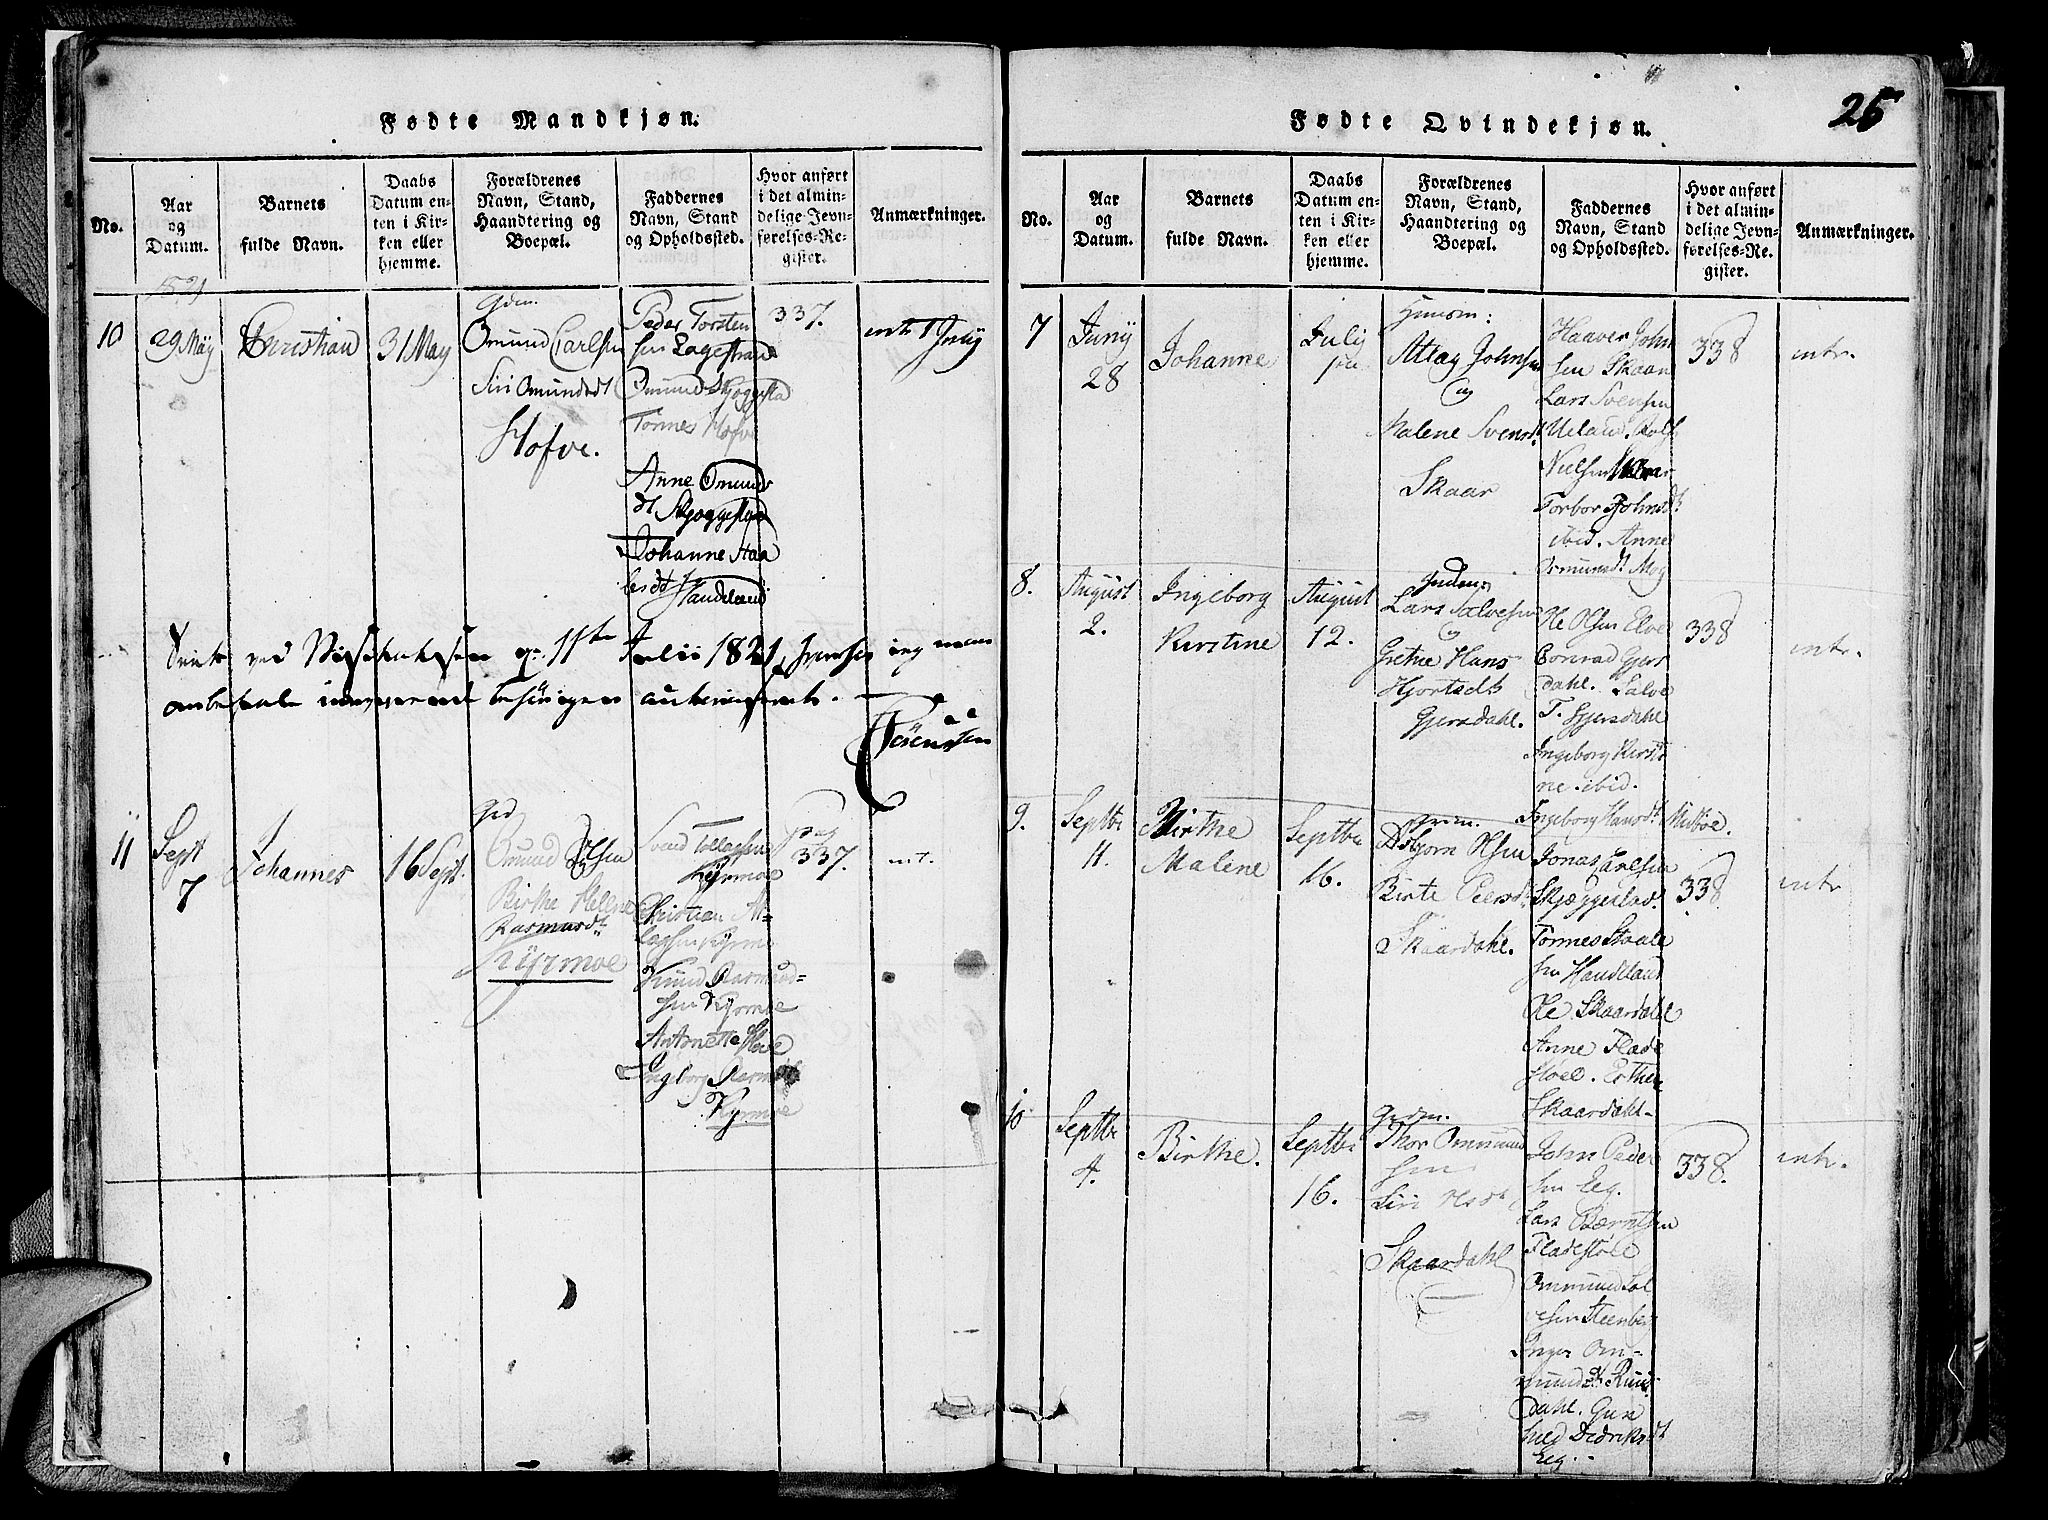 Fødte Mandkjøn.
No.
Aar
og
Datum.
Barnets
fulde Navn.
Daabs
Datum en-
ten i Kir-
ken eller
hjemme.
Forældrenes
Navn, Stand,
Haandtering og
Boepæl.
Faddernes
Navn, Stand
og Opholdssted.
Hvor anført
i det almin-
delige Jevn-
førelses-Re-
gister.
Anmærkninger.
1821
10
29 May
Christian
31 May
Gdm.
Omund Carlsen
Siri Omundsdt
Hofve.
Peder Torsten
sen Lagestrand
Omund Skjoggesta
Tønnes Hofve
Anne Omunds
dt Skjoggestad
Johanne Staa
lesdt Handeland
337.
intr 1 July
ved 11te Julii 1821,
Sørensen
11
Sept
7
Johannes
16 Sept.
Gd
Omund Olsen
Birthe Helene
Rasmusdt
Kyrmoe
Svend Tollagsen
Kyrmoe
Christian At-
lagsen Kyrmoe
Knud Rasmus-
sen Kyrmoe
Antonette Hove
Ingeborg Rasmusdt
Kyrmoe
337.
int.
25
Fødte Qvindekjøn.
No.
Aar
og
Datum.
Barnets
fulde Navn.
Daabs
Datum en-
ten i Kir-
ken eller
hjemme.
Forældrenes
Navn, Stand,
Haandtering og
Boepæl.
Faddernes
Navn, Stand
og Opholdssted.
Hvor anført
i det almin-
delige Jevn-
førelses-Re-
gister.
Anmærkninger.
7
Juny
28
Johanne
July
Atlag Johnsen
og
Malene Svensdt
Skaar
Haaver John
sen Skaar
Lars Svensen
Ueland. Rolf
Nielsen
Torbor Johnsdt
ibid. Anne
Ormundsdt Moy
338
intr.
8.
August
2.
Ingeborg
Kirstine
August
12.
Lars Salvesen
og
Grethe Hans
Hjortsdt
Gjersdahl.
Ole Olsen Elve
Conrad Gjers
dahl. Salve
T. Gjersdahl
Ingeborg Kirsti
ne ibid.
Ingeborg Hansdt
338
intr.
9.
Septbr
11.
Birthe
Malene
Septbr
16.
Gdm.
Asbjørn Olsen
Birte Peersdt
Skaardahl.
Jonas Carlsen
Skjæggestad.
Tønnes Staale
sen Handeland
Ole Skaardahl
Anne Flade
støel. Esther
Skaardahl
338
intr
10
Septbr
4.
Birthe.
Septbr
16.
Gdm.
Thor Ommund
sen
Siri
Skaardahl
John Peder
sen Eeg.
Lars Berntsen
Fladestøl
Ommund Tol
sen Steenberg
Inger Om-
mundsdt Ruus
dahl. Gun
hild Didriksdt
Eeg.
338.
intr.